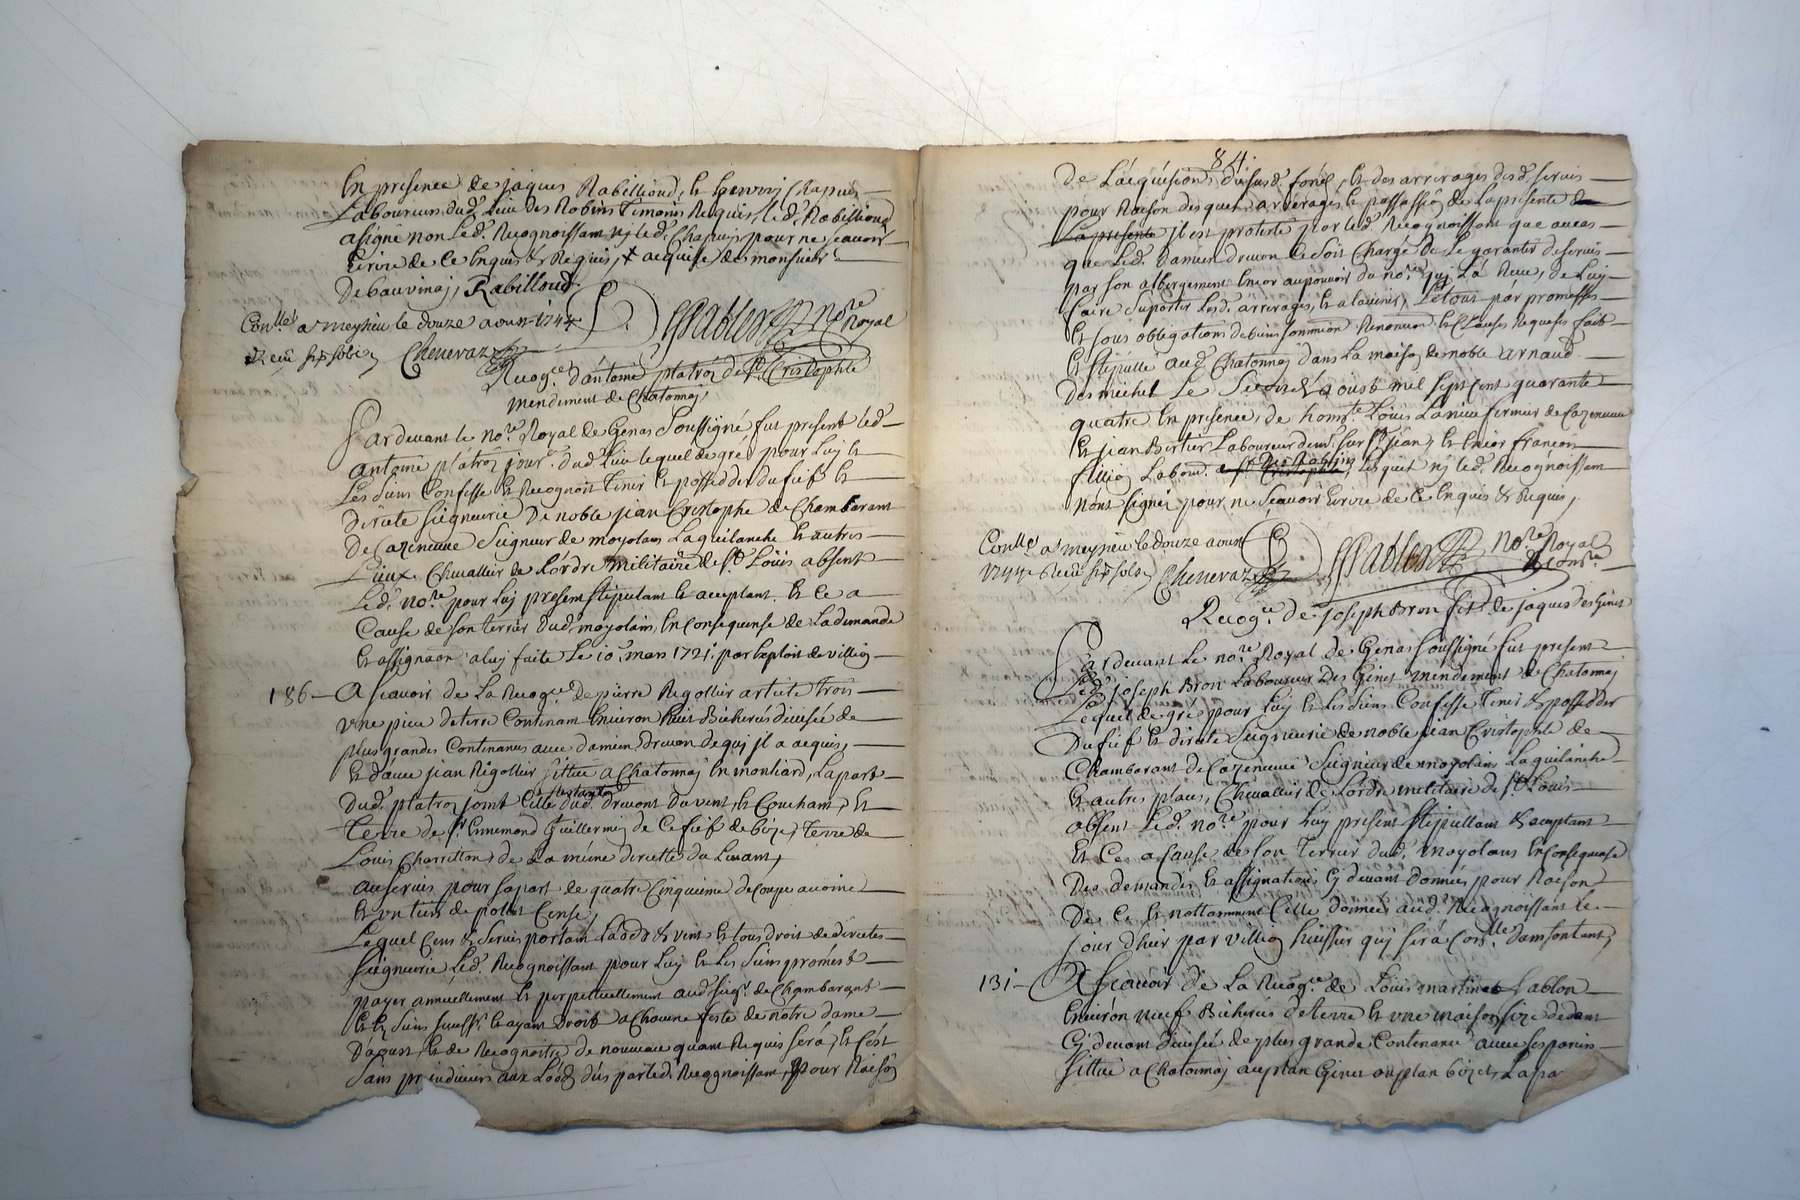 En presence de jaques Rabillioud, et henry Chapuis
Laboureurs dud. Lieu des Robins Temoins Requis, led. Rabillioud
a signé non Led. Recognoissant nj led. Chapuis pour ne scavoir
Ecrire de ce Enquis & Requis, + acquise de monsieur
De Gauvinaj, Rabilloud.
Conllé a meyzieu le douze aoust 1744
Recu six sols Chenevaz No.re Royal
Recog.ce d'antoine platroz de St. Cristophle
mendement de Chatonnaj,
Pardevant le no.re Royal de Genas soussigné, fut present led.
antoine platroz jour.r dud. Lieu lequel de gré pour luy et
Les siens Confesse et Recognoit tenir et posseder du fief et
directe seigneurie De noble jean Cristophe de Chambarant
De Cazeneuve Seigneur de moyolans Laquilanche et autres
Lieux Chevallier de L'ordre militaire de St. Louis absent
Led. no.re pour luy present stipulant et acceptant. Et Ce a
Cause de son terrier dud. moyolans, En consequense de La demande
et assignaon a luj faite Le 10. mars 1721. par Exploit de villion
186 — A scavoir de La Recog.ce de pierre Rigollier article trois
vne piece de terre Contenant Environ huit Bicherés divisée de
plus grandes Contenances avec damien Drevon de quj jl a acquis,
et d'avec jean Rigollier sittué a Chatonnaj En montiard, La part
Dud. platroz joint Celle dud. drevont du vent, et Couchant, Et
Terre de Sr. Ennemond Guillermin de Ce fief de bize, terre de
Louis Charrillon de La méme directe du Levant,
au servis pour sa part de quatre Cinquieme de coupe avoine
Et vn tiers de polet Cense,
Lequel Cens & servis portant Laods & vent et tous droit de directes
seigneurie Led. Recognoissant pour luy et Les siens promés &
payer annuellement et perpetuellement aud. seigr. de Chambarant
et Es siens success.rs et ayant droit a Chacune feste de notre dame
D'aoust, et de Recognoitre de nouveau quant Requis serà, Et C'est
sans prejudicier aux Loods dùs par led. Recognoissant, pour Raison
84.
De L'acquision du susd. fond, et des arrerages desd. servis
pour Raison desquels arrerages et passassion de La presente
La presente jl est protesté par led. Recognoissant que au cas
que Led. damien drevon Ce soit Chargé de Le garantir de servis
par son albergement Encor au pouvoir du no.re quj L'a Receu, de Luj
faire suporter Lesd. arrerages, et a l'avenir, Le tout par promesses
et sous obligations de biens soumission Renonciation et Clauses Requises fait
Et stipullé aud. Chatonnaj dans La maison de noble arnaud
Desmichel Le Seize aoust mil sept cent quarante
quatre En presence, de honn.te Louis Laniece fermier de Cazeneuve
et jean Bertier Laboureur dem.t sur St. jean, et Encor francois
Labour. a St. Cristophle des Roblins Lesquel nj led. Recognoissant
n'ont signé pour ne scavoir Ecrire de Ce Enquis & Requis,
Conllé a meyzieu le douze aoust
1744 Recu six sols Chenevaz No.re Royal
Recog.ce de joseph Bron fils de jaques des Ginet
Pardevant Le no.re Royal de Genas soussigné fut present
Led. joseph Bron Laboureur des Ginet mendement de Chatonnaj
Lequel de gré pour luy et les siens Confesse tenir & posseder
Du fief et directe seigneurie de noble jean Cristophle de
Chambarant de Cazeneuve seigneur de moyolans, Laquilanche
et autres places, Chevallier de L'ordre militaire de St. Louis
absent Led. no.re pour luy present stipullant & acceptant
Et Ce a Cause de son terrier dud. moyolans En consequense
Des demandes et assignations cj devant données pour Raison
De Ce et nottamment Celle donnée aud. Recognoissant le
jour d'hier par villion huissier quj serà Conllé dans son tant,
131 — A scavoir de La Recog.ce de Louis martinet sablon
Environ neuf Bicherées de terre et vne maison size dedant
Cj devant divisée de plus grande Contenance avec ses parties
sittué a Chatonnaj au plan Ginet ou plan bizet, La pa